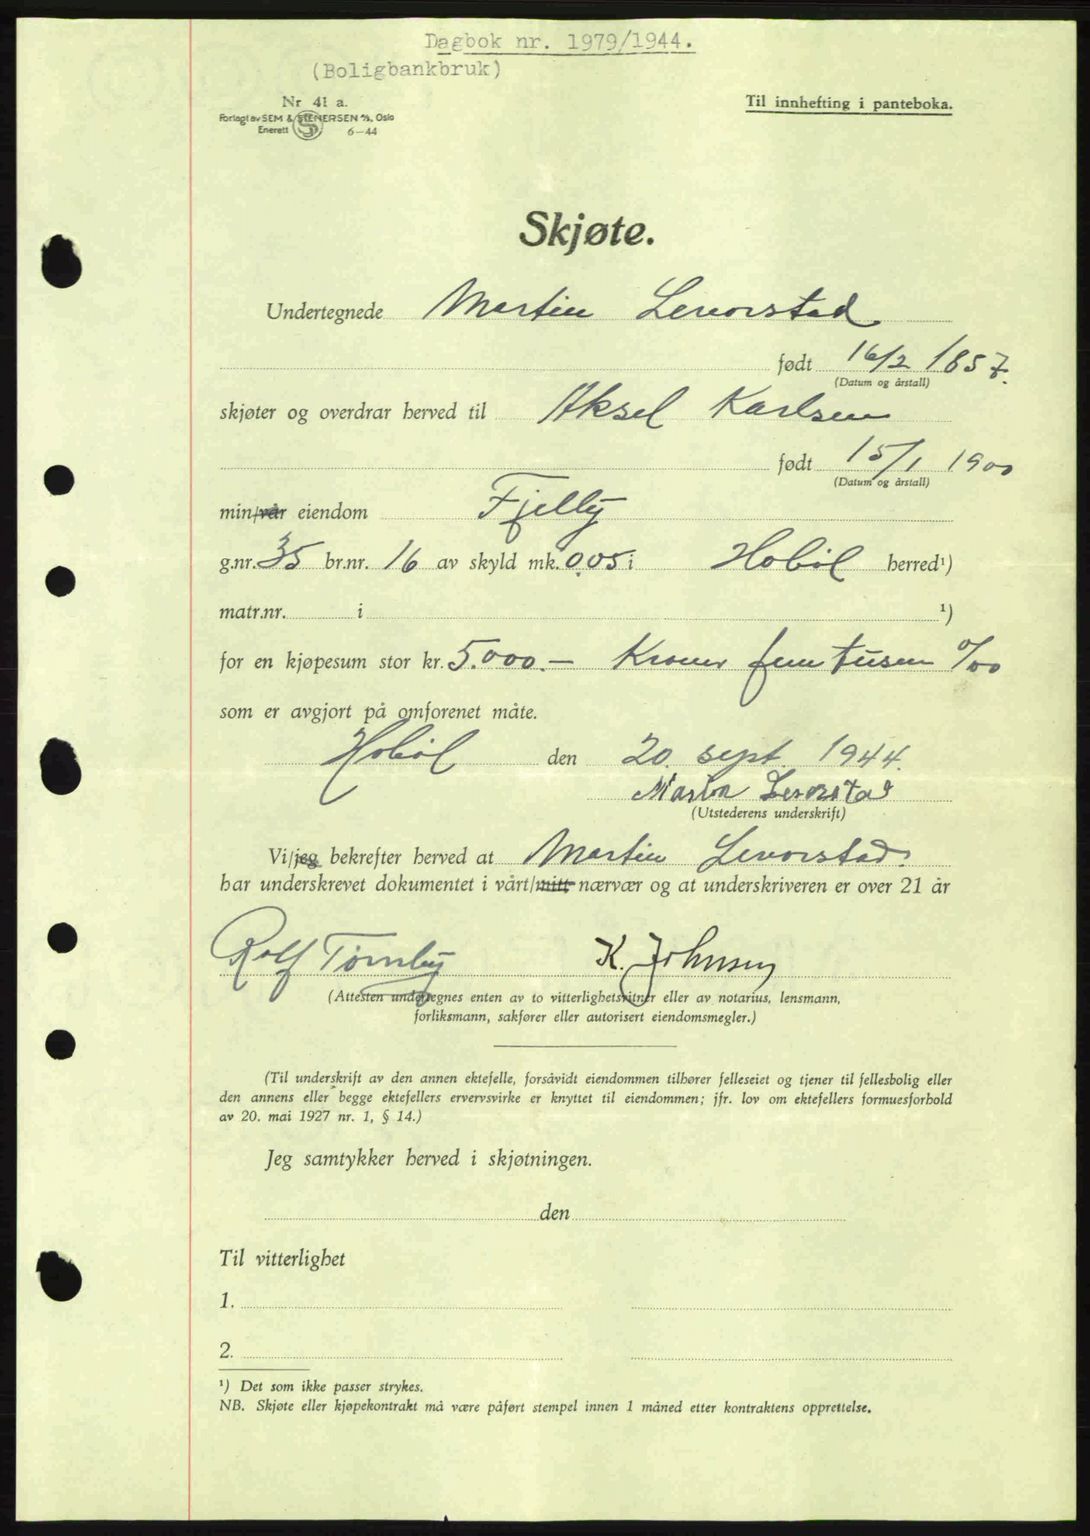 Dagbok nr. 1979/1944.
(Boligbankbruk)
Nr 41 a.
Forlagt av SEM & STENERSEN A/S, Oslo
Enerett 6–44
Til innhefting i panteboka.
Skjøte.
Undertegnede Martin Levorstad
født 16/2 1857.
(Datum og årstall)
skjøter og overdrar herved til Aksel Karlsen
født 15/1 1900
(Datum og årstall)
min/vår eiendom Fjelly
g.nr. 35 br.nr. 16 av skyld mk. 0,05 i Hobøl herred¹)
matr.nr. i ¹)
for en kjøpesum stor kr. 5.000.— Kroner fem tusen 0/00
som er avgjort på omforenet måte.
Hobøl den 20. sept. 1944.
Martin Levorstad
(Utstederens underskrift)
Vi/jeg bekrefter herved at Martin Levorstad.
har underskrevet dokumentet i vårt/mitt nærvær og at underskriveren er over 21 år
Rolf Tømby K. Johnsen
(Attesten undertegnes enten av to vitterlighetsvitner eller av notarius, lensmann,
forliksmann, sakfører eller autorisert eiendomsmegler.)
(Til underskrift av den annen ektefelle, forsåvidt eiendommen tilhører felleseiet og tjener til fellesbolig eller
den annens eller begge ektefellers ervervsvirke er knyttet til eiendommen; jfr. lov om ektefellers formuesforhold
av 20. mai 1927 nr. 1, § 14.)
Jeg samtykker herved i skjøtningen.
den
Til vitterlighet
1.
2.
¹) Det som ikke passer strykes.
NB. Skjøte eller kjøpekontrakt må være påført stempel innen 1 måned etter kontraktens opprettelse.